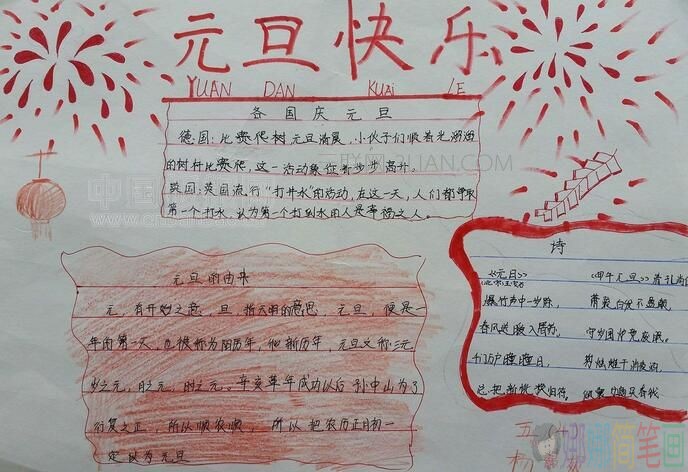 元旦快乐
YUAN DAN KUAI LE
各国庆元旦
德国:比赛爬树元旦清晨,小伙子们顺着光溜溜
的树杆比赛爬,这一活动象征着步步高升。
英国:英国流行"打井水"的活动,在这一天,人们都争取
第一个打水,认为第一个打到水的人是幸福之人。
元旦的由来
元,有开始之意,旦,指天明的意思,元旦,便是一
年的第一天,也被称为阳历年,他新历年,元旦又称三元
岁之元,日之元,时之元。辛亥革年成功以后孙中山为了
行夏之正,所以顺农顺,所以把农历正月初一
定以为元旦
诗
《元日》
爆竹声中一岁除,
春风送暖入屠苏。
千门万户曈曈日,
总把新桃换旧符。
《甲午元旦》
萧疏白发不盈颠,
守岁围炉竟废眠。
剪烛催干消夜酒,
五
简笔画